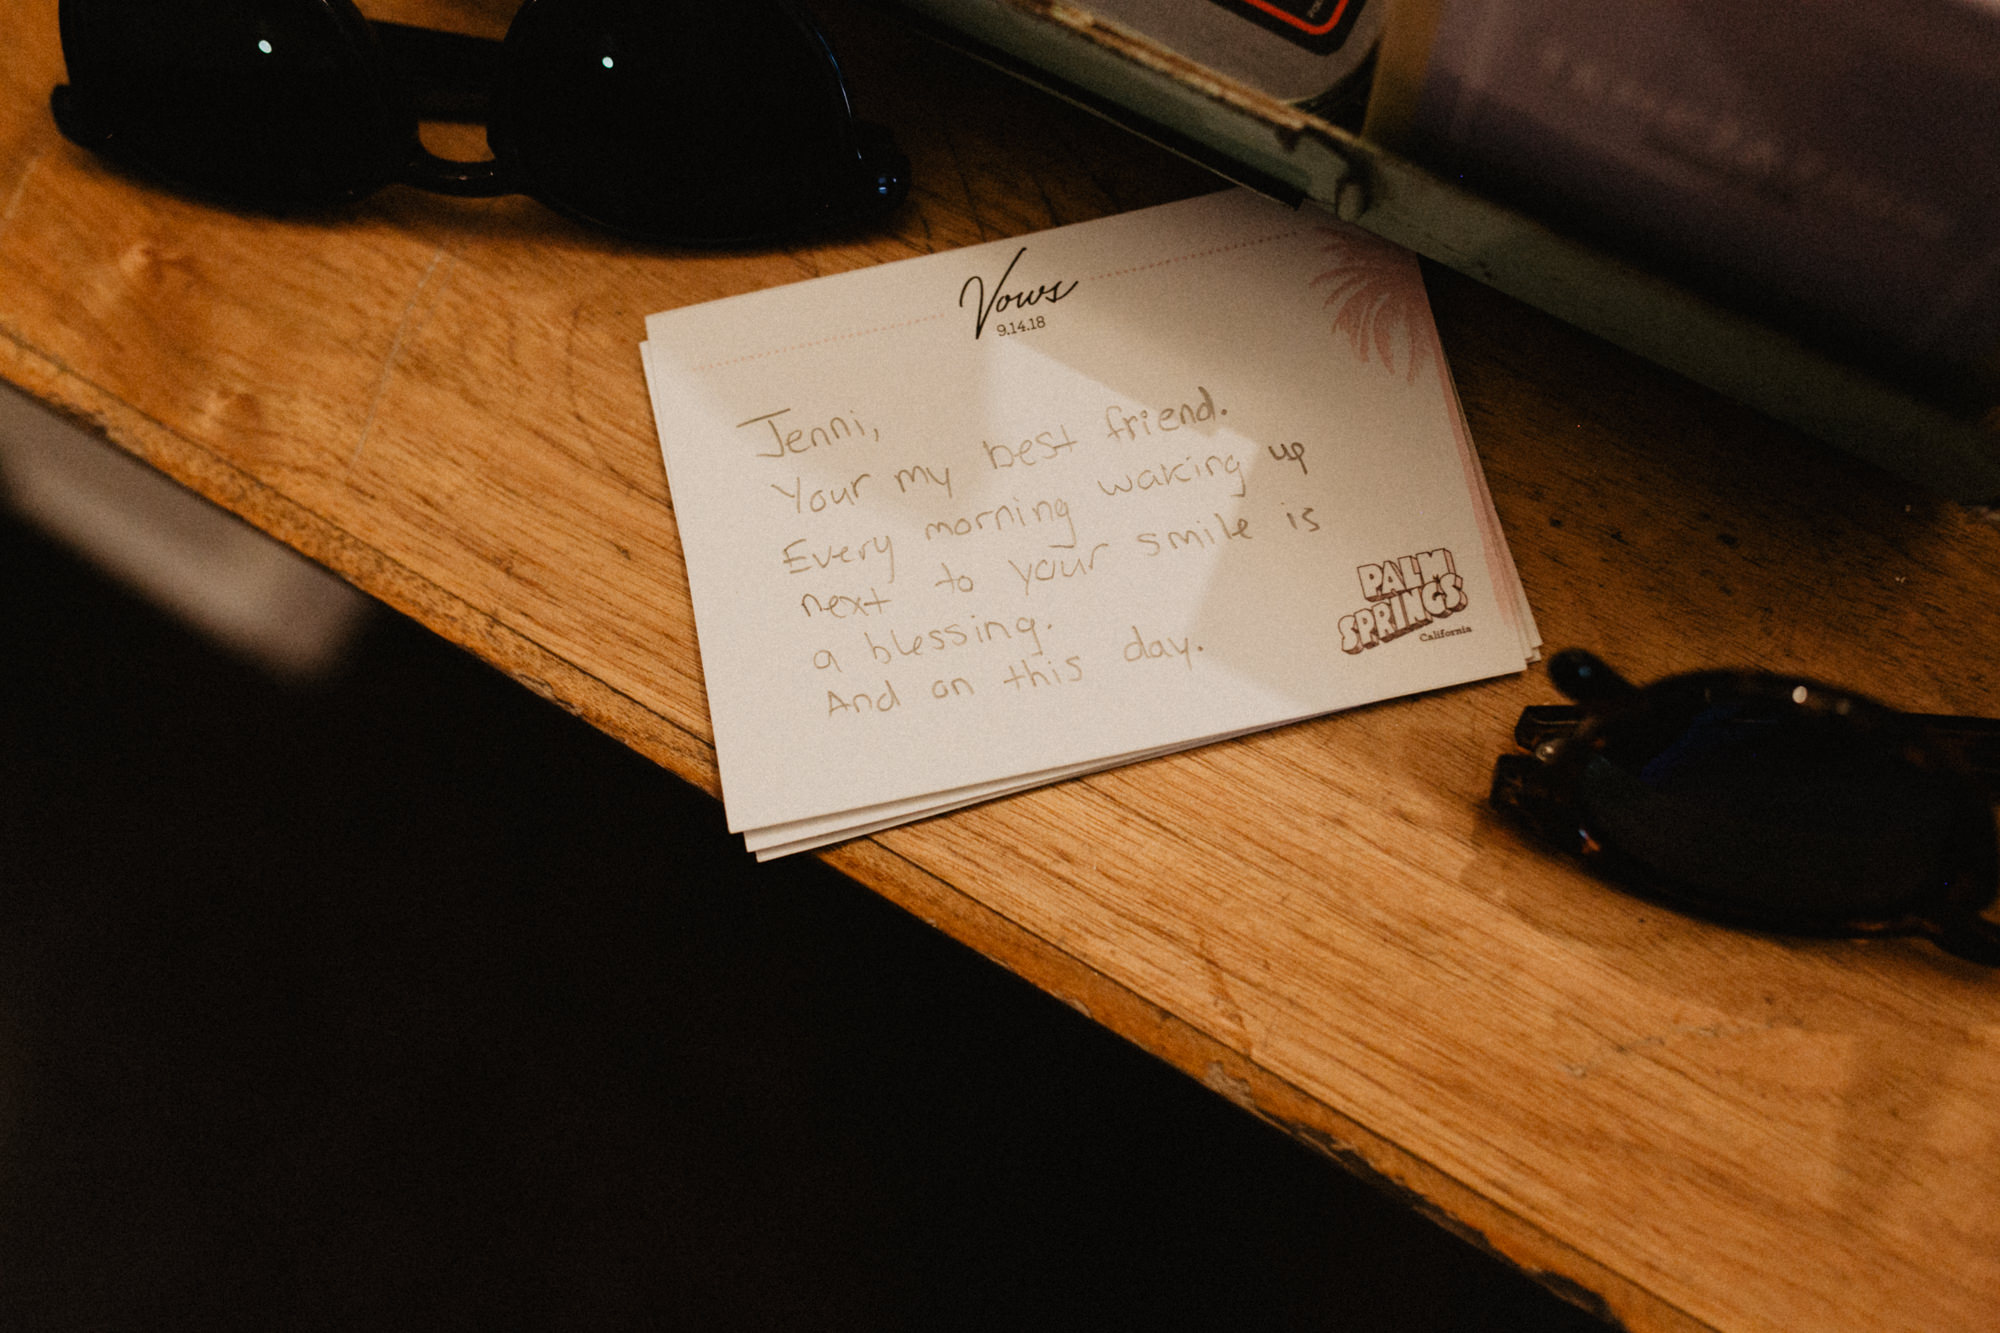 Vows
9.14.18
Jenni,
Your my best friend.
Every morning waking up
next to your smile is
a blessing.
And on this day.
PALM
SPRINGS
California